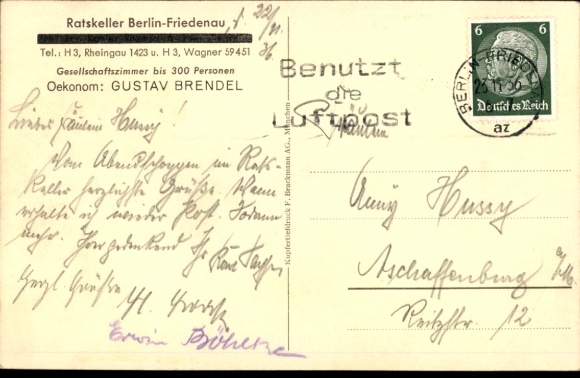 Ratskeller Berlin-Friedenau
Tel.: H 3, Rheingau 1423 u. H 3, Wagner 59451
Gesellschaftszimmer bis 300 Personen
Oekonom: GUSTAV BRENDEL
22/11.
36.
Liebes Fräulein Hussy!
Vom Abendschoppen im Rats-
keller herzlichste Grüße. Wann
erhalte ich wieder Post.
mehr. Ihr
Herzl. Grüße
Erwin
Kupfertiefdruck F. Bruckmann AG., München
Benutzt
die
Luftpost
6 6
Deutsches Reich
BERLIN-FRIEDENAU
az
Fräulein
Anny Hussy
Aschaffenburg
Reitzstr. 12